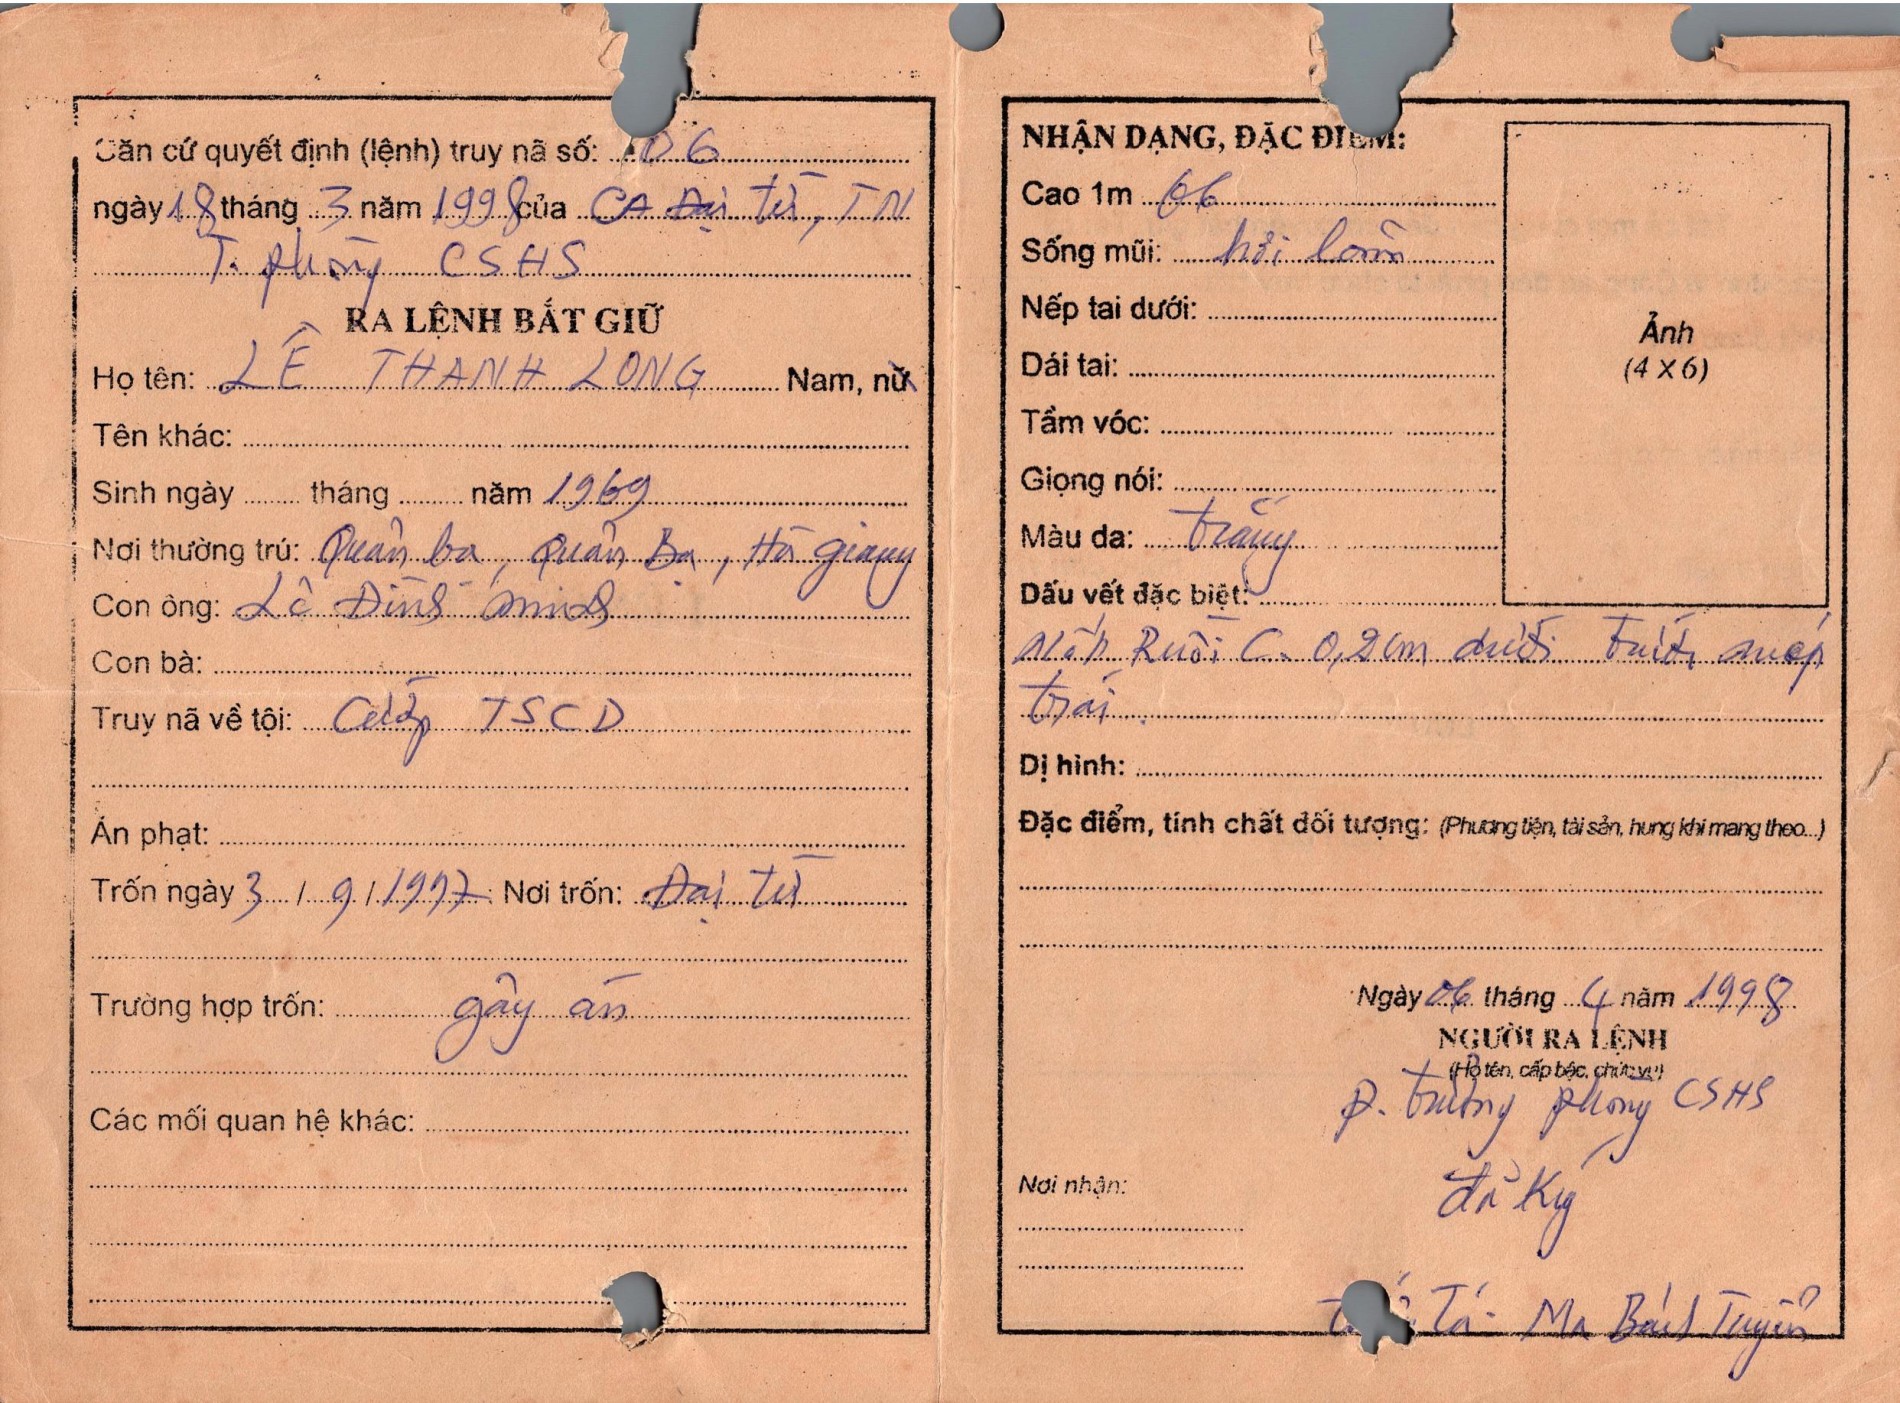 Căn cứ quyết định (lệnh) truy nã số: 06
ngày 18 tháng 3 năm 1998 của CA Đại Từ, TN
T. phòng CSHS
RA LỆNH BẮT GIỮ
Họ tên: LÊ THANH LONG Nam, nữ
Tên khác:
Sinh ngày tháng năm 1969
Nơi thường trú: Quản bạ, Quản Bạ, Hà giang
Con ông: Lê Đình Minh
Con bà:
Truy nã về tội: Cướp TSCD
Án phạt:
Trốn ngày 3 / 9 / 1997 Nơi trốn: Đại Từ
Trường hợp trốn: gây án
Các mối quan hệ khác:
NHẬN DẠNG, ĐẶC ĐIỂM:
Cao 1m 66
Sống mũi: hơi lõm
Nếp tai dưới:
Dái tai:
Tầm vóc:
Giọng nói:
Màu da: trắng
Dấu vết đặc biệt:
Nốt Ruồi C. 0,2cm dưới trước mép
trái
Ảnh
(4 X 6)
Dị hình:
Đặc điểm, tính chất đối tượng: (Phương tiện, tài sản, hung khí mang theo...)
Ngày 06 tháng 4 năm 1998
NGƯỜI RA LỆNH
(Họ tên, cấp bậc, chức vụ)
P. trưởng phòng CSHS
đã ký
Nơi nhận:
Tá - Ma Bách Tuyên